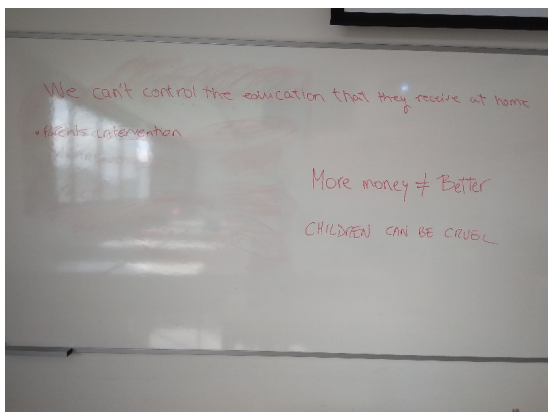 We can't control the education that they receive at home
• Parents intervention
More money ≠ Better
CHILDREN CAN BE CRUEL